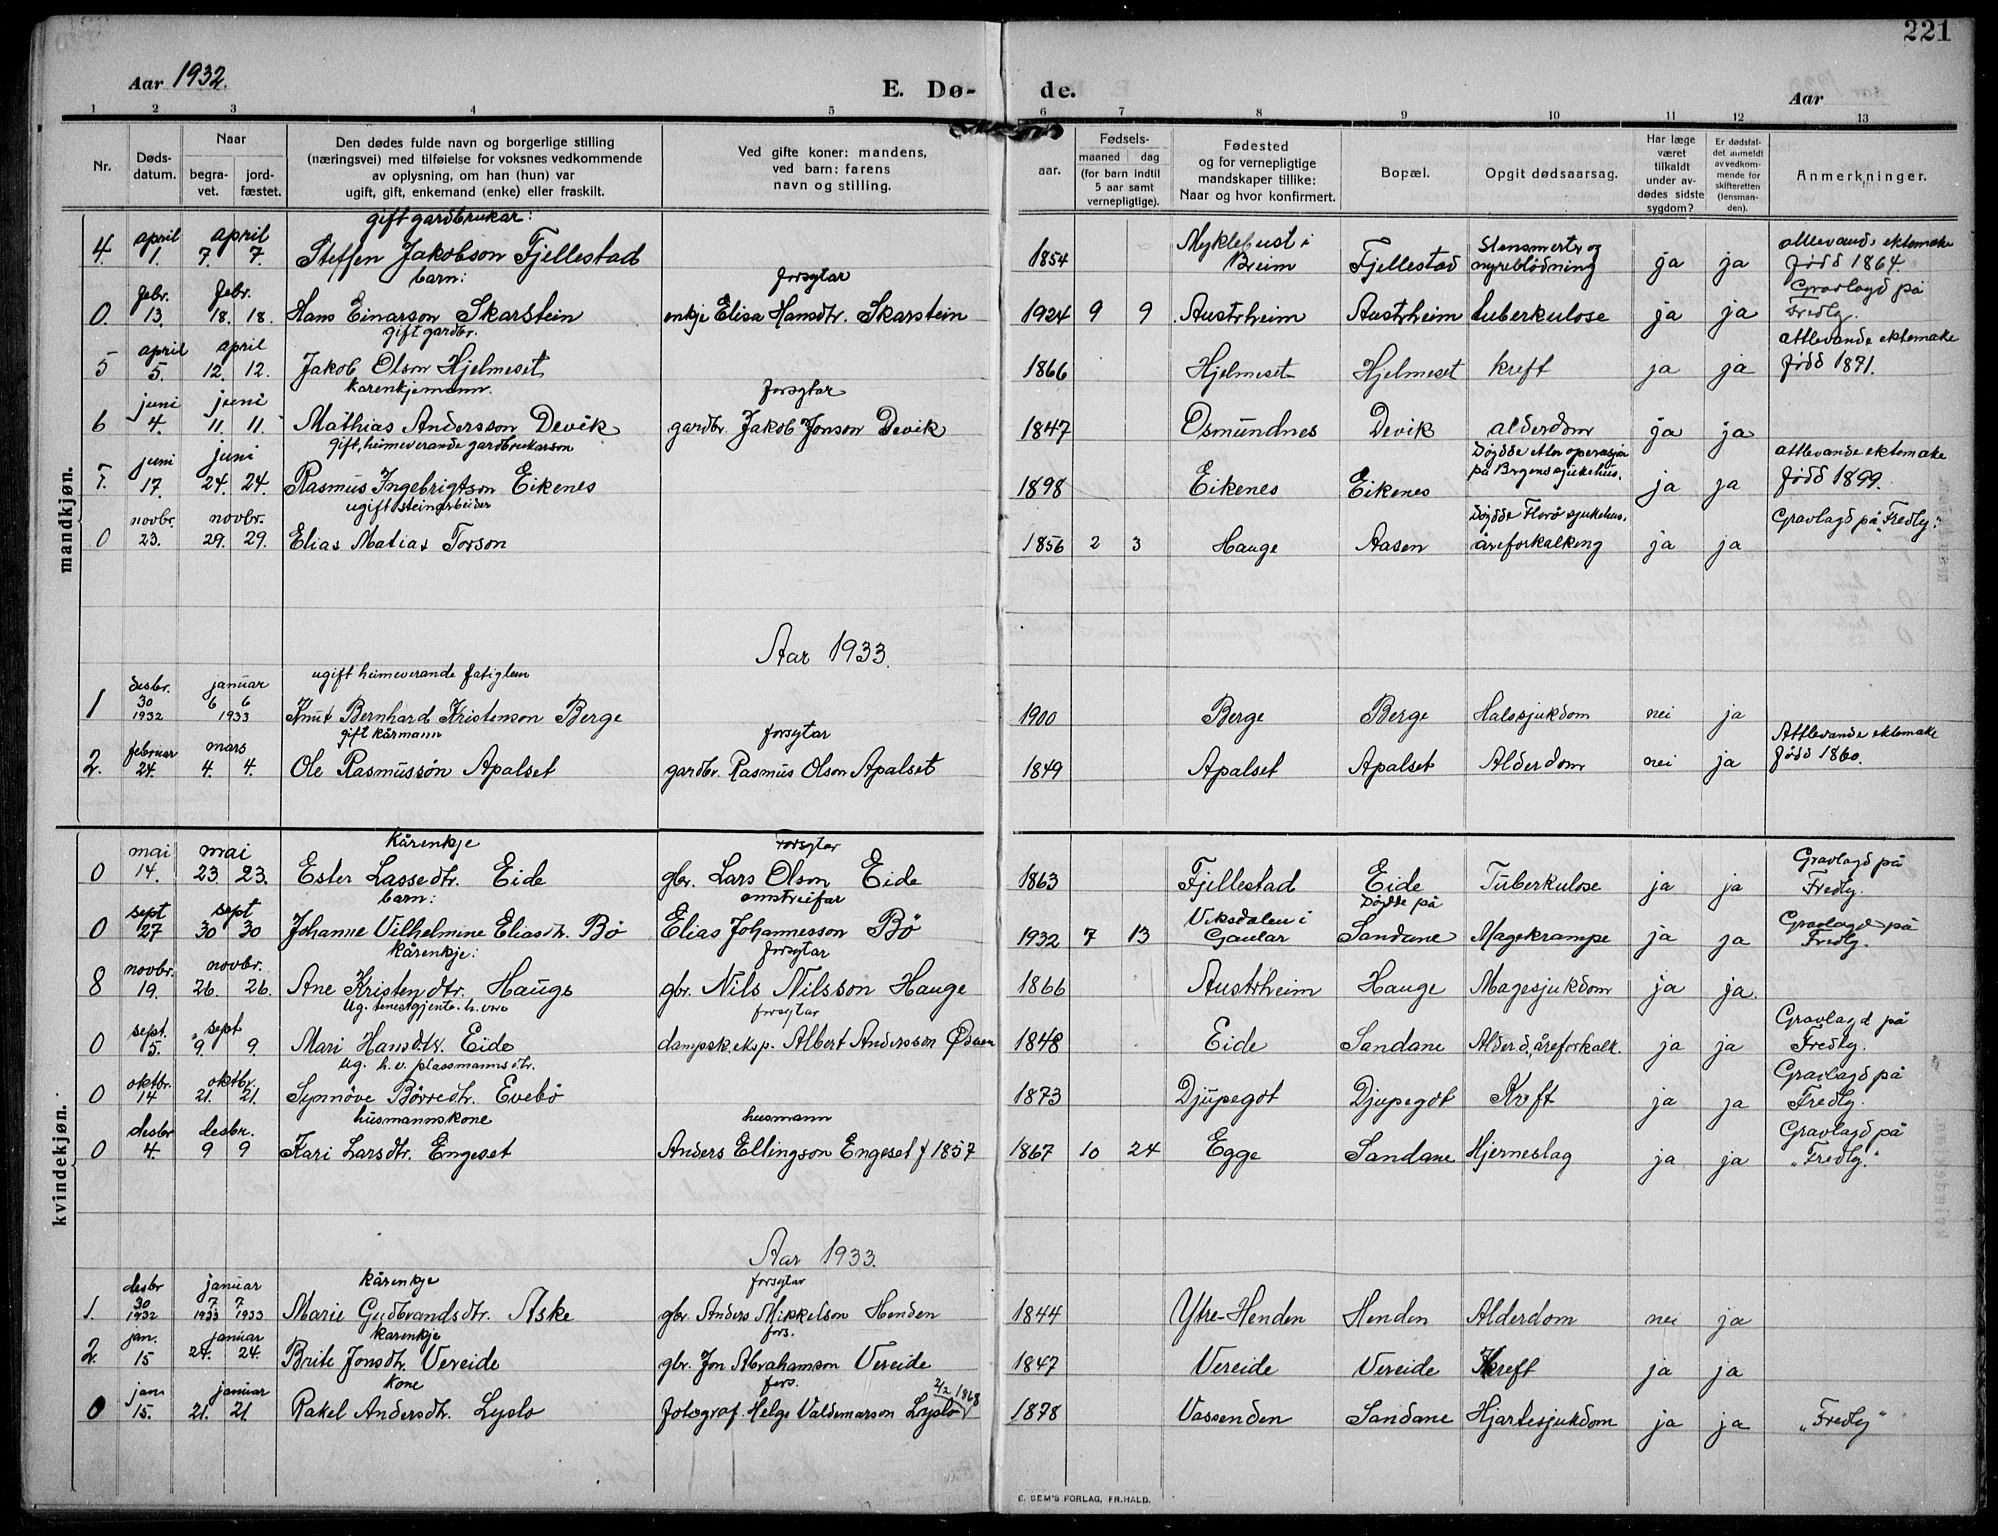 221
Aar 1932.
E. Dø- de.
Aar
1 2 3 4 5 6 7 8 9 10 11 12 13
Nr.
Døds-
datum.
Naar
begra-
vet.
jord-
fæstet.
Den dødes fulde navn og borgerlige stilling
(næringsvei) med tilføielse for voksnes vedkommende
av oplysning, om han (hun) var
ugift, gift, enkemand (enke) eller fraskilt.
Ved gifte koner: mandens,
ved barn: farens
navn og stilling.
aar.
Fødsels-
maaned dag
(for barn indtil
5 aar samt
vernepligtige).
Fødested
og for vernepligtige
mandskaper tillike:
Naar og hvor konfirmert.
Bopæl.
Opgit dødsaarsag.
Har læge
været
tilkaldt
under av-
dødes sidste
sygdom?
Er dødsfal-
det anmeldt
av vedkom-
mende for
skifteretten
(lensman-
den).
Anmerkninger.
mandkjøn.
gift gardbrukar:
4. april 1. april 7. 7. Steffen Jakobson Fjellestad 1854 Myklebust i Breim Fjellestad Stensmerter og nyreblödning ja ja attlevande ektemake född 1864.
barn: forsytar
0. febr. 13. febr. 18. 18. Hans Einarson Skarstein enkje Elisa Hansdtr. Skarstein 1924 9 9 Austrheim Austrheim tuberkulose ja ja Gravlagd på Fredly.
gift gardbr.
5 april 5. april 12. 12. Jakob Olson Hjelmeset 1866 Hjelmeset Hjelmeset kreft ja ja attlevande ektemake född 1871.
kårenkjemann. forsytar
6 juni 4. juni 11. 11. Mathias Andersson Devik gardbr. Jakob Jonson Devik 1847 Osmundnes Devik alderdom ja ja
gift, heimeverande gardbrukarson
7. juni 17. juni 24. 24. Rasmus Ingebrigtson Eikenes 1898 Eikenes Eikenes Döydde etter operasjon på Bergens sjukehus. ja ja attlevande ektemake född 1899.
ugift steinarbeider
0 novbr. 23. novbr. 29. 29. Elias Matias Torson 1856 2 3 Hauge Aasen Döydde Florö sjukehus. åreforkalkning ja ja Gravlagd på "Fredly."
Aar 1933.
ugift heimeverande fatiglem
1 desbr. 30 1932 januar 6 6 1933 Knut Bernhard Kristenson Berge 1900 Berge Berge Halssjukdom nei ja
gift kårmann forsytar
2. februar 24. mars 4. 4. Ole Rasmussøn Apalset gardbr. Rasmus Olson Apalset 1849 Apalset Apalset Alderdom nei ja Attlevande ektemake född 1860.
kvindekjøn.
kårenkje Forsytar
0 mai 14. mai 23. 23. Ester Lassedtr. Eide gbr. Lars Olson Eide 1863 Fjellestad Eide Tuberkulose ja ja Gravlagd på Fredly.
barn: omstreifar
0 sept 27 sept 30 30 Johanne Vilhelmine Eliasdtr. Bö Elias Johannesson Bö 1932 7 13 Viksdalen i Gaular Döydde på Sandane Magekrampe ja ja Gravlagd på Fredly.
kårenkje: forsytar
8 novbr. 19. novbr. 26. 26. Ane Kristendtr. Hauge gbr. Nils Nilsson Hauge 1866 Austrheim Hauge Magesjukdom ja ja.
Ug. tenestgjente. h. vere forsytar
0 sept. 5. sept 9. 9. Mari Hansdtr. Eide dampsk.eksp. Albert Andersson 1848 Eide Sandane Alderd., åreforkalk. ja ja Gravlagd på Fredly.
ug. h. v. plassmannsdtr.
0 oktbr. 14 oktbr. 21. 21. Synnöve Börredtr. Evebö 1873 Djupegot Djupegot Kreft ja ja Gravlagd på Fredly.
husmannskone husmann
0 desbr 4. desbr. 9 9 Kari Larsdtr. Engeset Anders Ellingson Engeset f 1857 1867 10 24 Egge Sandane Hjerneslag ja ja Gravlagd på "Fredly."
Aar 1933.
kårenkje forsytar
1. desbr 30 1932 januar 7. 7 1933 1933 Marie Gudbrandsdtr. Aske gbr. Anders Mikkelson Henden 1844 Ytre-Henden Henden Alderdom nei ja
kårenkje fors.
2. jan. 15 januar 24. 24. Brite Jonsdtr. Vereide gbr. Jon Abrahamson Vereide 1847 Vereide Vereide Kreft ja ja
kone fors.
0 jan 15. januar 21. 21. Rakel Andersdtr. Lyslo fotograf. Helge Valdemarson Lyslo 2/2 1868 1878 Vassenden Sandane Hjartesjukdom ja ja "Fredly"
E. SEM'S FORLAG, FR.HALD.